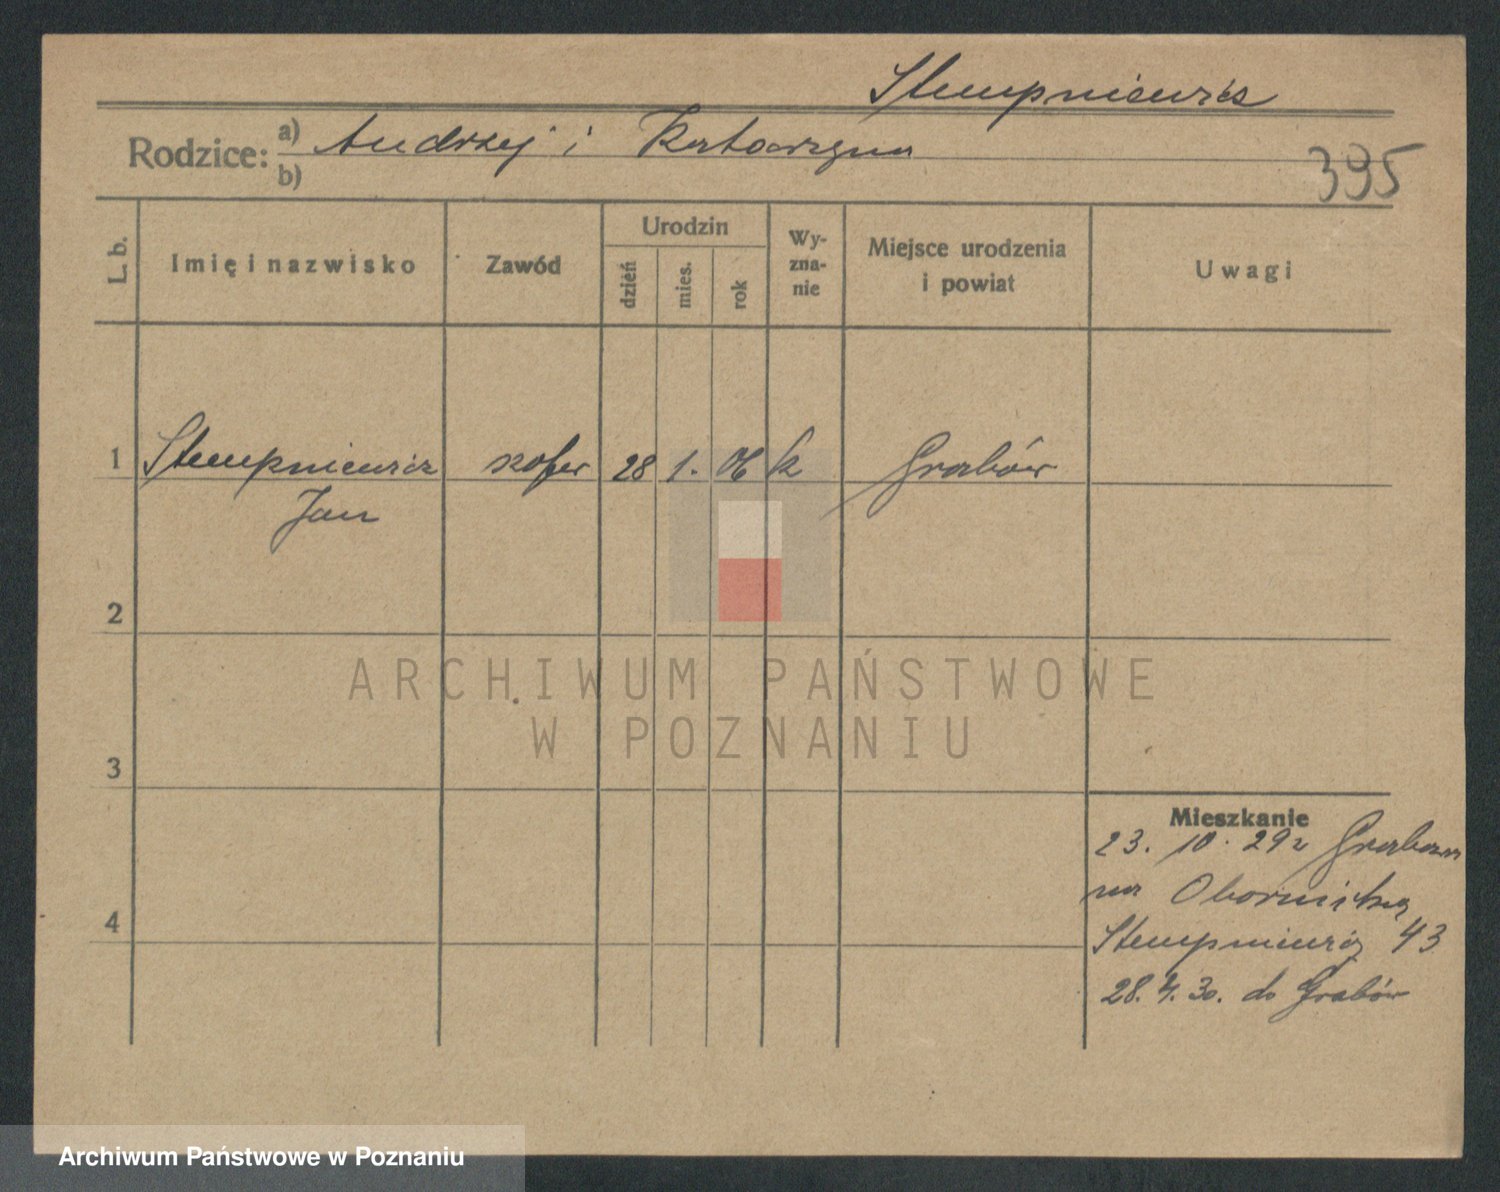 Stempniewicz
Rodzice: a) Andrzej i Katarzyna
b)
395
L. b.
Imię i nazwisko
Zawód
Urodzin
dzień
mies.
rok
Wy-
zna-
nie
Miejsce urodzenia
i powiat
Uwagi
1 Stempniewicz szofer 28 1. 06 k Grabów
Jan
2
ARCHIWUM PAŃSTWOWE
W POZNANIU
3
Mieszkanie
23. 10. 29 z Grabowa
na Obornicką
4
Stempniewicz 43
28. 4. 30. do Grabów
Archiwum Państwowe w Poznaniu